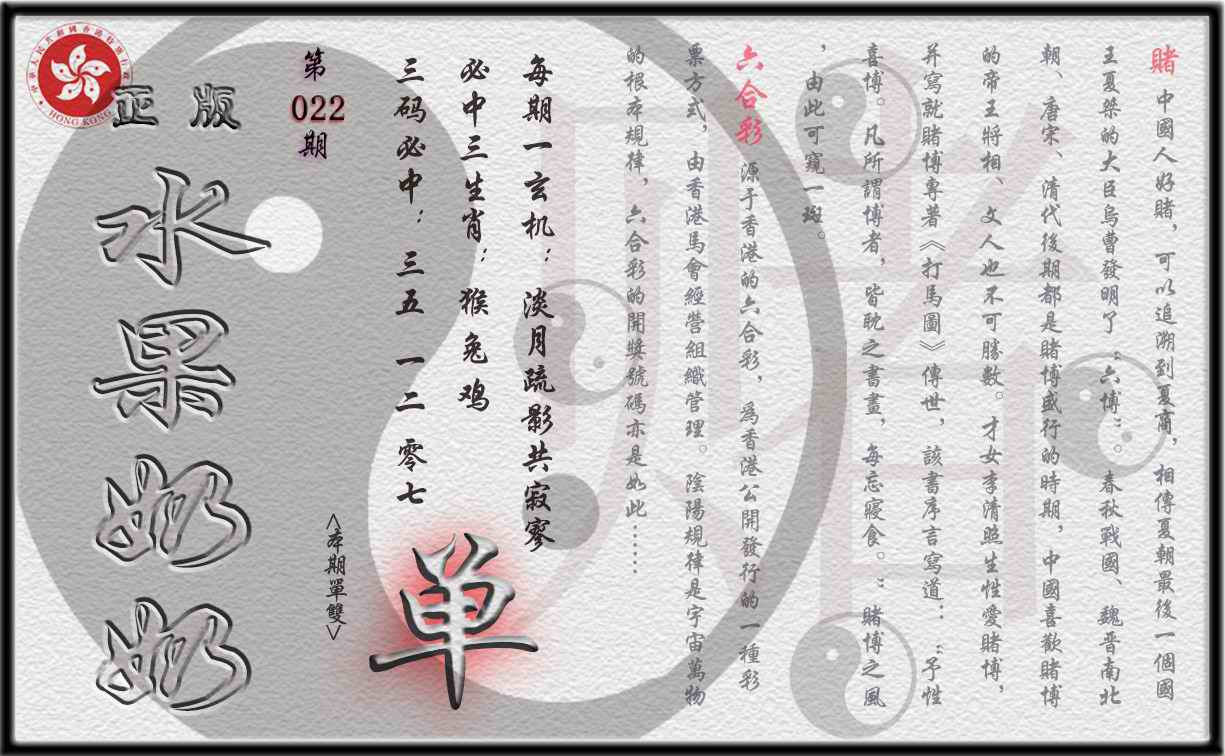 賭 中國人好賭，可以追溯到夏商，相傳夏朝最後一個國
王夏桀的大臣烏曹發明了“六博”。春秋戰國、魏晋南北
朝、唐宋、清代後期都是賭博盛行的時期，中國喜歡賭博
的帝王將相、文人也不可勝數。才女李清照生性愛賭博，
并寫就賭博專著《打馬圖》傳世，該書序言寫道：“予性
喜博。凡所謂博者，皆耽之書晝，每忘寢食。”賭博之風
，由此可窺一斑。
六合彩 源于香港的六合彩，爲香港公開發行的一種彩
票方式，由香港馬會經營組織管理。陰陽規律是宇宙萬物
的根本規律，六合彩的開獎號碼亦是如此……
每期一玄机：淡月疏影共寂寥
必中三生肖：猴兔鸡
三码必中：三五 一二 零七
单
<本期單雙>
第022期
正版
水果奶奶
HONG KONG